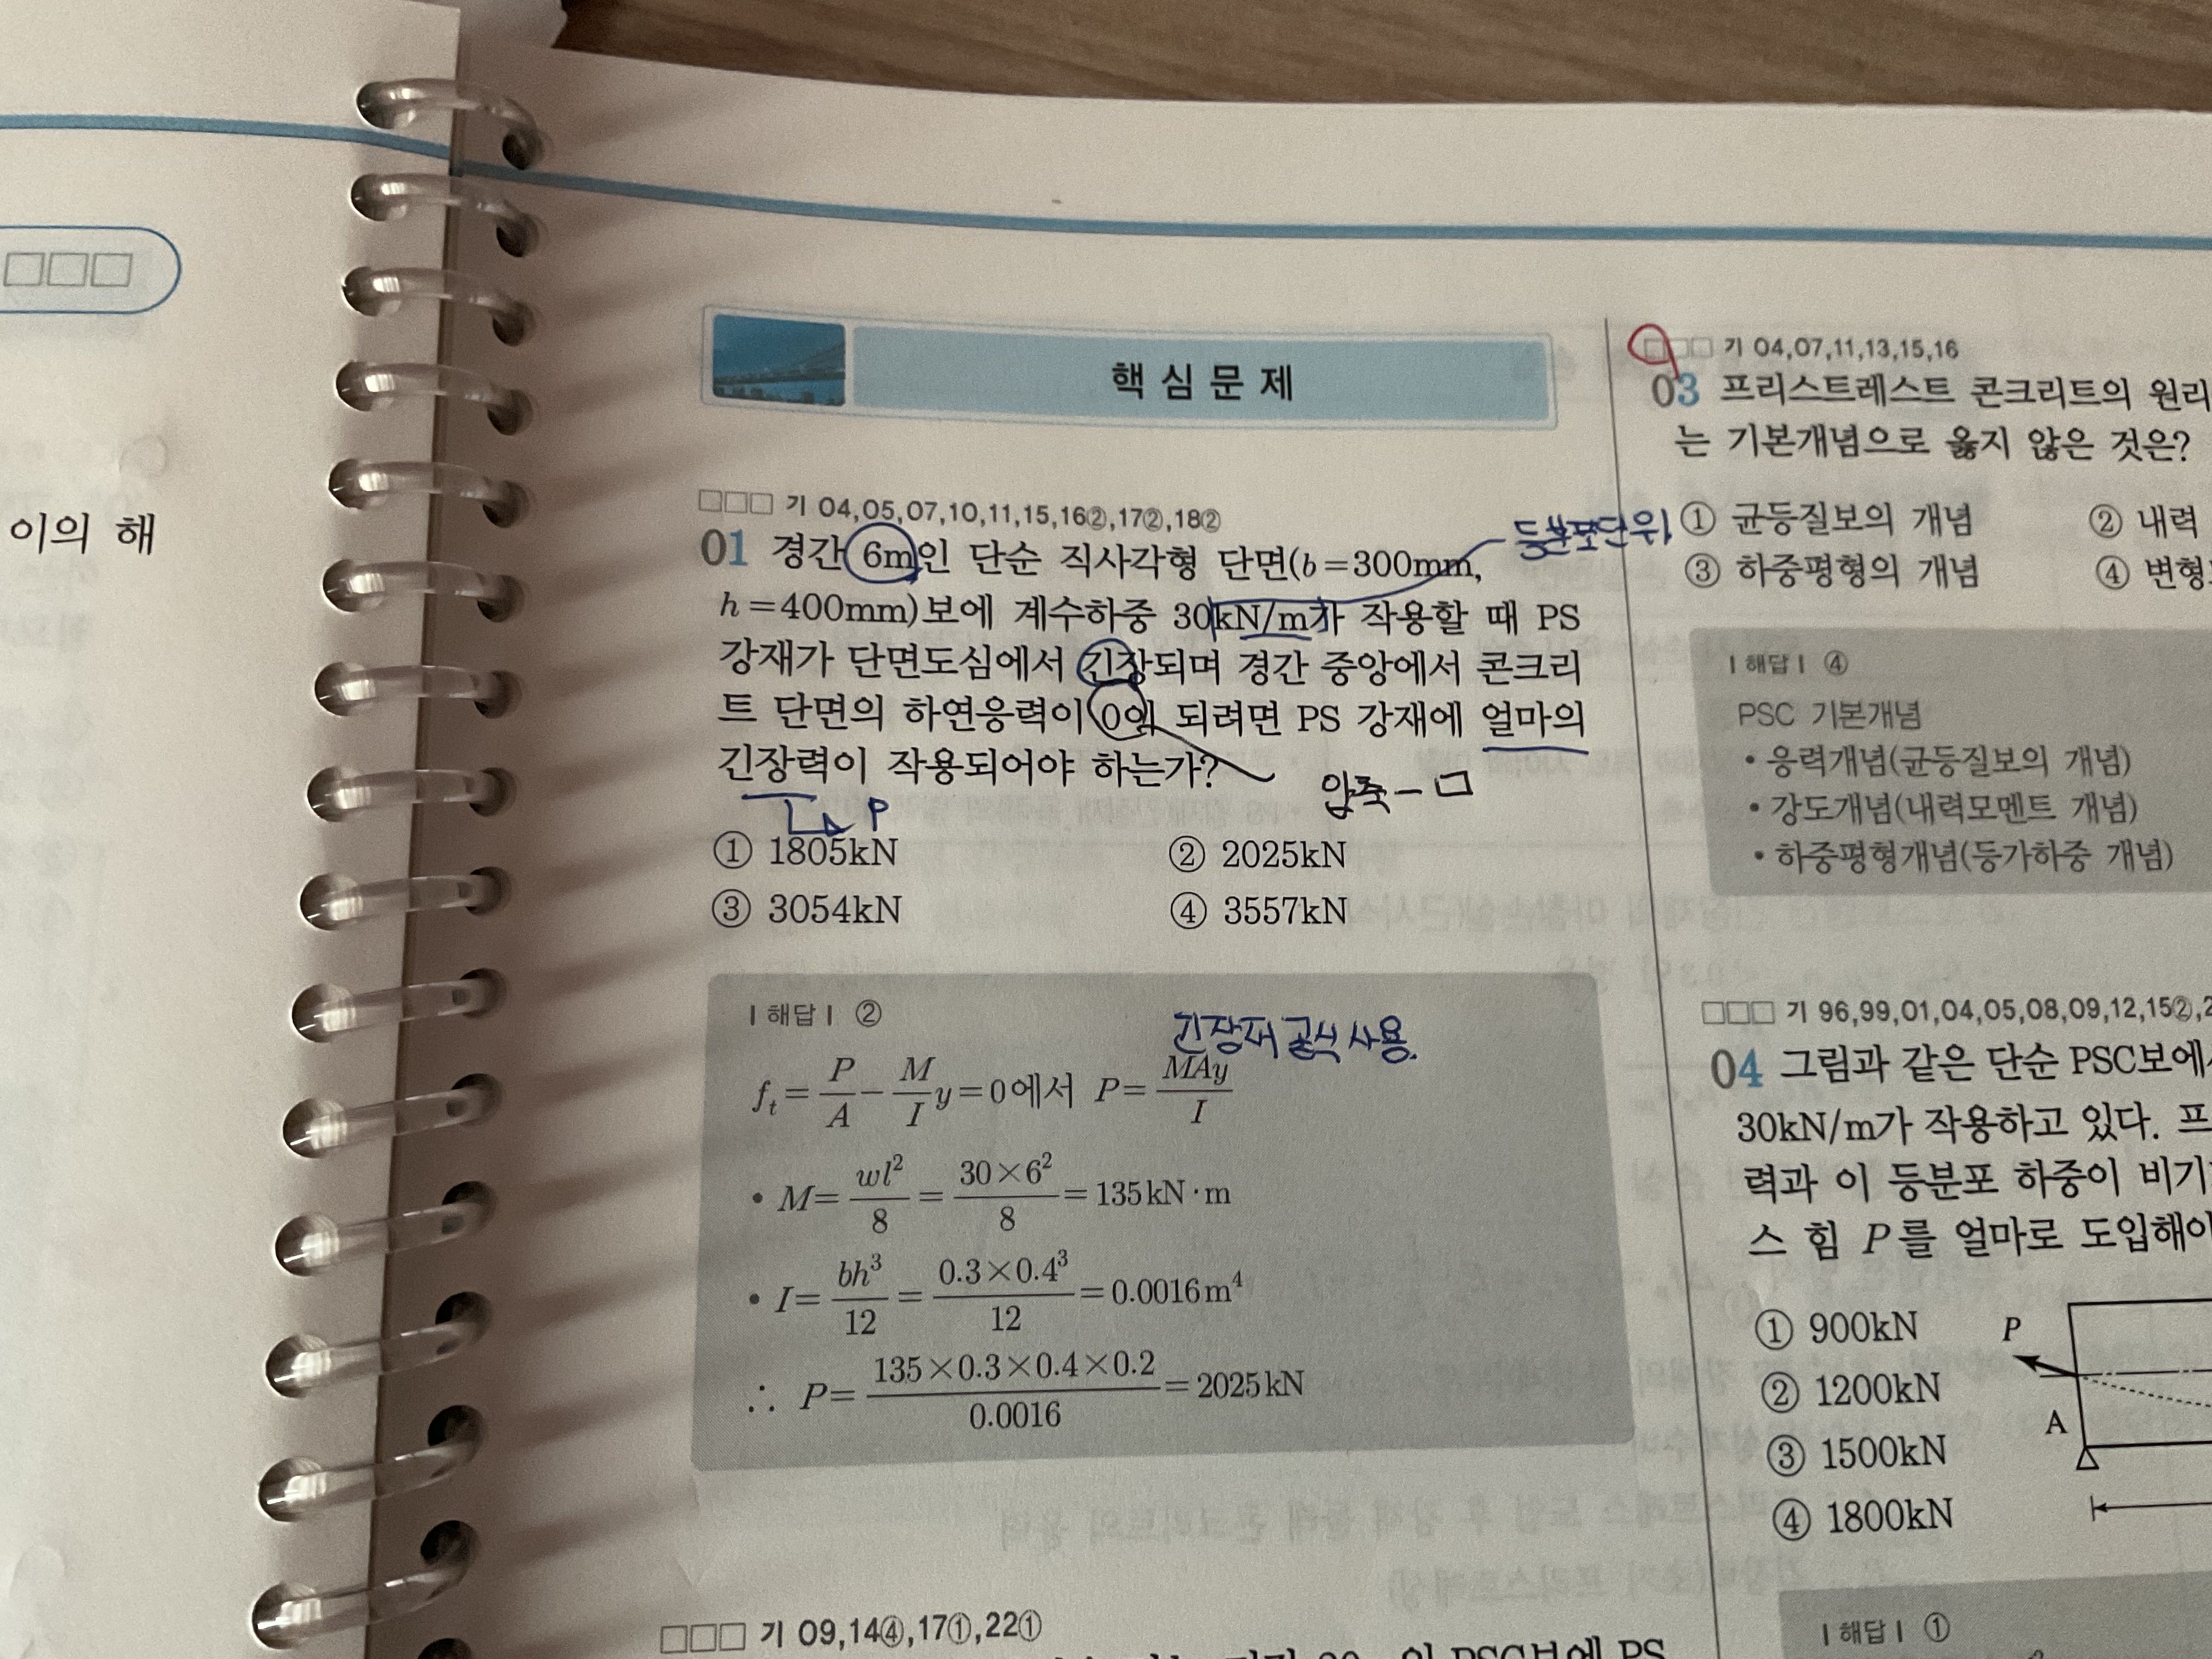 이의 해
핵심문제
□□□ 기 04,05,07,10,11,15,16②,17②,18②
01 경간 6m인 단순 직사각형 단면(b=300mm,
등분포단위
h=400mm)보에 계수하중 30kN/m가 작용할 때 PS
강재가 단면도심에서 긴장되며 경간 중앙에서 콘크리
트 단면의 하연응력이 0이 되려면 PS 강재에 얼마의
긴장력이 작용되어야 하는가?
압축 - □
P
① 1805kN ② 2025kN
③ 3054kN ④ 3557kN
|해답| ②
긴장재 공식 사용.
f_t = P/A - M/I y = 0에서 P = MAy/I
• M = wl²/8 = 30×6²/8 = 135kN·m
• I = bh³/12 = 0.3×0.4³/12 = 0.0016m⁴
∴ P = 135×0.3×0.4×0.2/0.0016 = 2025kN
□□□ 기 09,14④,17①,22①
PSC보에 PS
□□□ 기 04,07,11,13,15,16
03 프리스트레스트 콘크리트의 원리
는 기본개념으로 옳지 않은 것은?
① 균등질보의 개념 ② 내력
③ 하중평형의 개념 ④ 변형
|해답| ④
PSC 기본개념
• 응력개념(균등질보의 개념)
• 강도개념(내력모멘트 개념)
• 하중평형개념(등가하중 개념)
□□□ 기 96,99,01,04,05,08,09,12,15②,2
04 그림과 같은 단순 PSC보에서
30kN/m가 작용하고 있다. 프
력과 이 등분포 하중이 비기
스 힘 P를 얼마로 도입해야
① 900kN
② 1200kN
③ 1500kN
④ 1800kN
P
A
|해답| ①